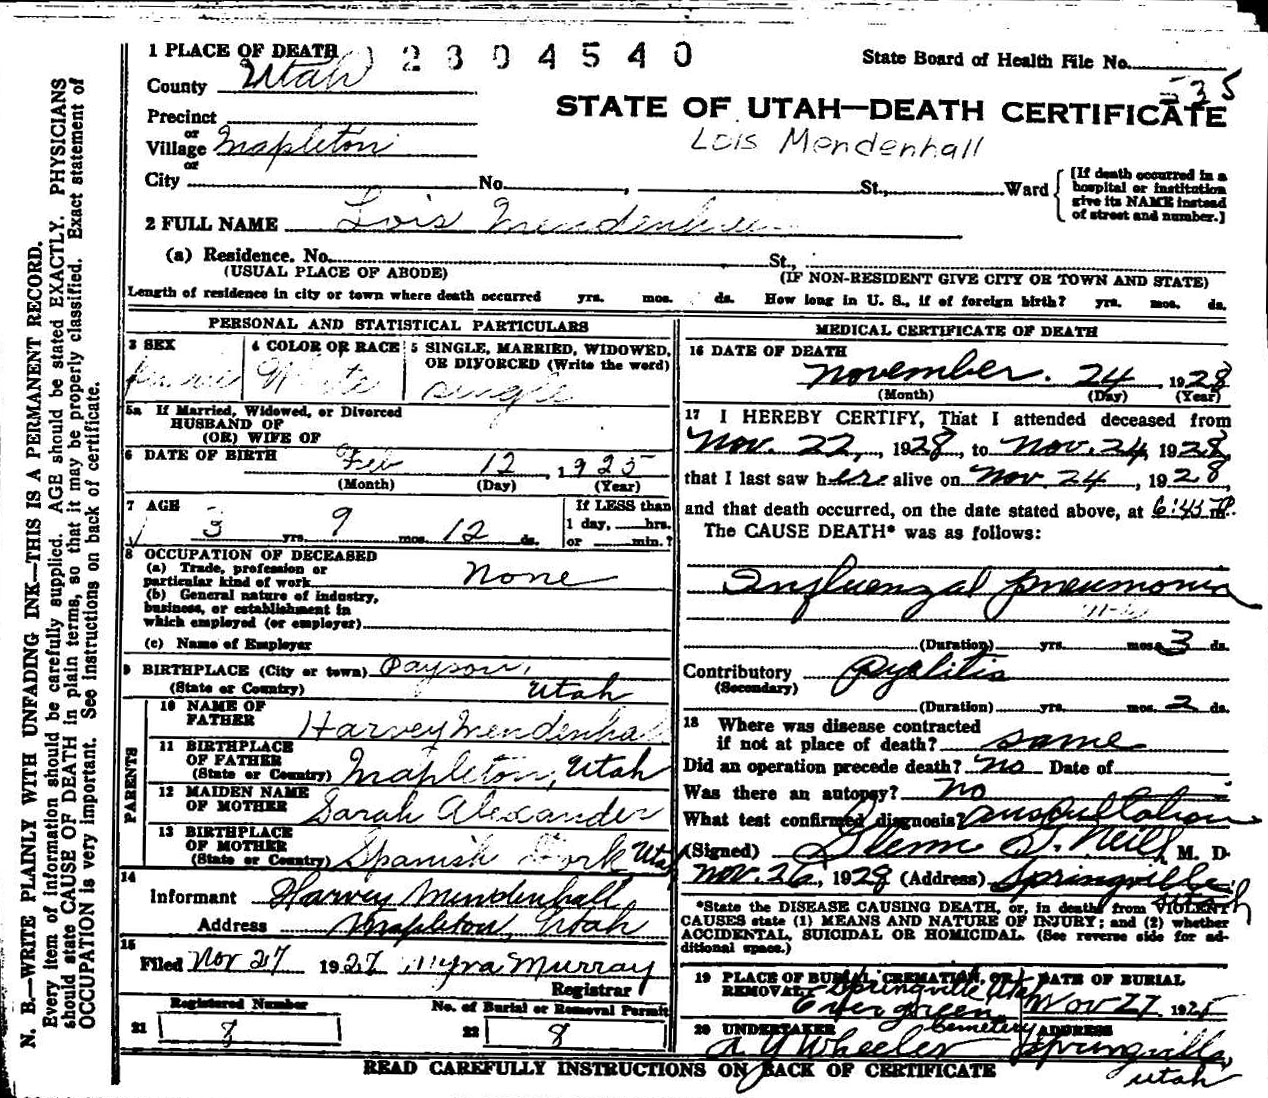 1 PLACE OF DEATH 2304540
State Board of Health File No. 535
County Utah
STATE OF UTAH—DEATH CERTIFICATE
Precinct
or
Village Mapleton
Lois Mendenhall
or
City No. , St., Ward
[If death occurred in a
hospital or institution
give its NAME instead
of street and number.]
2 FULL NAME Lois Mendenhall
(a) Residence. No. St.,
(USUAL PLACE OF ABODE) (IF NON-RESIDENT GIVE CITY OR TOWN AND STATE)
Length of residence in city or town where death occurred yrs. mos. ds. How long in U. S., if of foreign birth? yrs. mos. ds.
PERSONAL AND STATISTICAL PARTICULARS
3 SEX 4 COLOR OR RACE 5 SINGLE, MARRIED, WIDOWED,
OR DIVORCED (Write the word)
White single
5a If Married, Widowed, or Divorced
HUSBAND OF
(OR) WIFE OF
6 DATE OF BIRTH Feb 12, 1925
(Month) (Day) (Year)
7 AGE If LESS than
3 yrs. 9 mos. 12 ds. 1 day, hrs.
or min.?
8 OCCUPATION OF DECEASED
(a) Trade, profession or
particular kind of work None
(b) General nature of industry,
business, or establishment in
which employed (or employer)
(c) Name of Employer
9 BIRTHPLACE (City or town) Payson,
(State or Country) Utah
PARENTS
10 NAME OF
FATHER Harvey Mendenhal
11 BIRTHPLACE
OF FATHER
(State or Country) Mapleton, Utah
12 MAIDEN NAME
OF MOTHER Sarah Alexander
13 BIRTHPLACE
OF MOTHER
(State or Country) Spanish Fork Utah
14
Informant Harvey Mendenhall
Address Mapleton, Utah
15
Filed Nov 27 1927 Myra Murray
Registrar
Registered Number No. of Burial or Removal Permit
21 8 22 8
MEDICAL CERTIFICATE OF DEATH
16 DATE OF DEATH
November. 24, 1928
(Month) (Day) (Year)
17 I HEREBY CERTIFY, That I attended deceased from
Nov. 22, 1928, to Nov. 24, 1928,
that I last saw her alive on Nov. 24, 1928,
and that death occurred, on the date stated above, at 6:45 P.m.
The CAUSE DEATH* was as follows:
Influenzal pneumonia
(Duration) yrs. mos. 3 ds.
Contributory Pyelitis
(Secondary)
(Duration) yrs. mos. 2 ds.
18 Where was disease contracted
if not at place of death? same
Did an operation precede death? no Date of
Was there an autopsy? no
What test confirmed diagnosis? auscultation
(Signed) Glenn S. Neill M. D.
Nov. 26, 1928 (Address) Springville
Utah
*State the DISEASE CAUSING DEATH, or, in deaths from VIOLENT
CAUSES state (1) MEANS AND NATURE OF INJURY; and (2) whether
ACCIDENTAL, SUICIDAL OR HOMICIDAL. (See reverse side for ad-
ditional space.)
19 PLACE OF BURIAL, CREMATION, OR DATE OF BURIAL
REMOVAL Springville Utah
Evergreen Nov 27 1928
Cemetery
20 UNDERTAKER ADDRESS
A Y Wheeler Springville,
Utah
READ CAREFULLY INSTRUCTIONS ON BACK OF CERTIFICATE
N. B.—WRITE PLAINLY WITH UNFADING INK—THIS IS A PERMANENT RECORD.
Every item of information should be carefully supplied. AGE should be stated EXACTLY. PHYSICIANS
should state CAUSE OF DEATH in plain terms, so that it may be properly classified. Exact statement of
OCCUPATION is very important. See instructions on back of certificate.